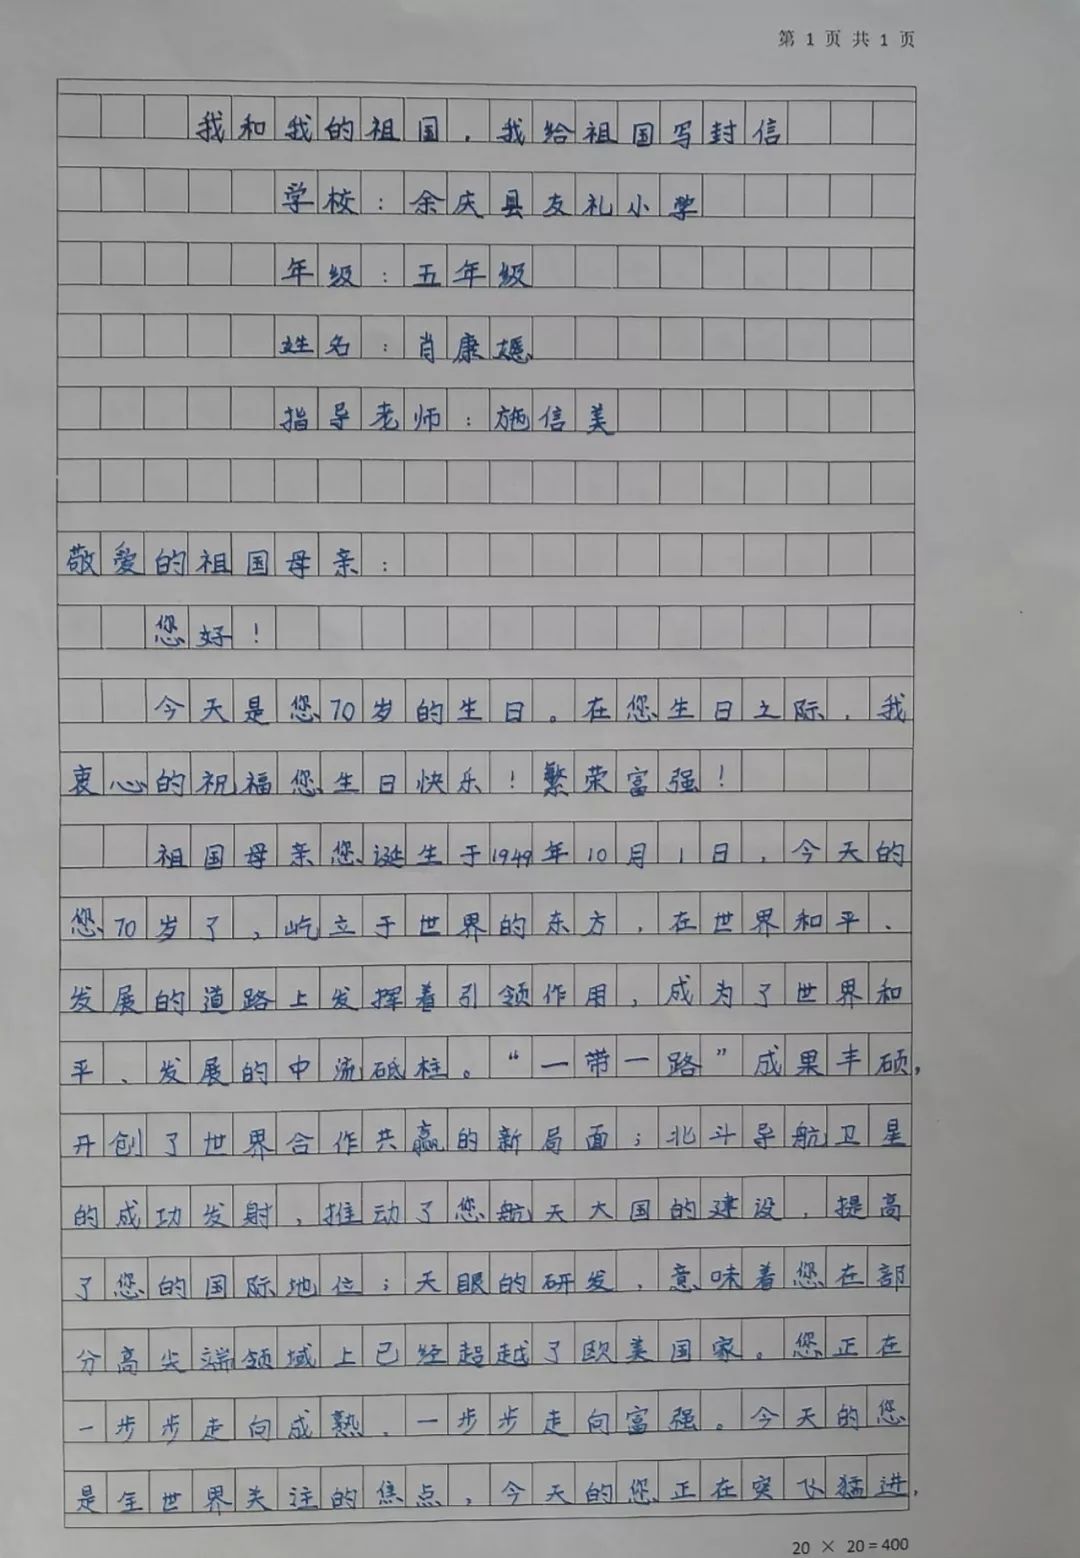 第 1 页 共 1 页
我和我的祖国，我给祖国写封信
学校：余庆县友礼小学
年级：五年级
姓名：肖康
指导老师：施信美
敬爱的祖国母亲：
您好！
今天是您70岁的生日。在您生日之际，我
衷心的祝福您生日快乐！繁荣富强！
祖国母亲您诞生于1949年10月1日，今天的
您70岁了，屹立于世界的东方，在世界和平、
发展的道路上发挥着引领作用，成为了世界和
平、发展的中流砥柱。“一带一路”成果丰硕，
开创了世界合作共赢的新局面；北斗导航卫星
的成功发射，推动了您航天大国的建设，提高
了您的国际地位；天眼的研发，意味着您在部
分高尖端领域上已经超越了欧美国家。您正在
一步步走向成熟、一步步走向富强。今天的您
是全世界关注的焦点，今天的您正在突飞猛进，
20 × 20＝400